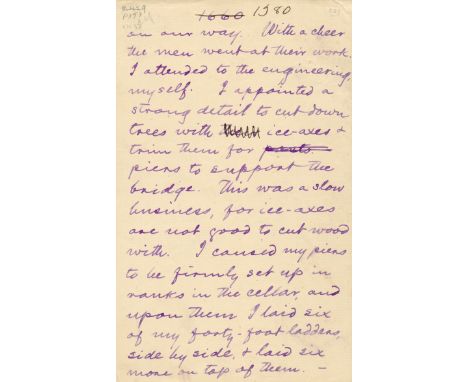 1660 1380
on our way. With a cheer
the men went at their work.
I attended to the engineering,
myself. I appointed a
strong detail to cut down
trees with ice-axes &
trim them for posts
piers to support the
bridge. This was a slow
business, for ice-axes
are not good to cut wood
with. I caused my piers
to be firmly set up in
ranks in the cellar, and
upon them I laid six
of my forty-foot ladders,
side by side, & laid six
more on top of them. —